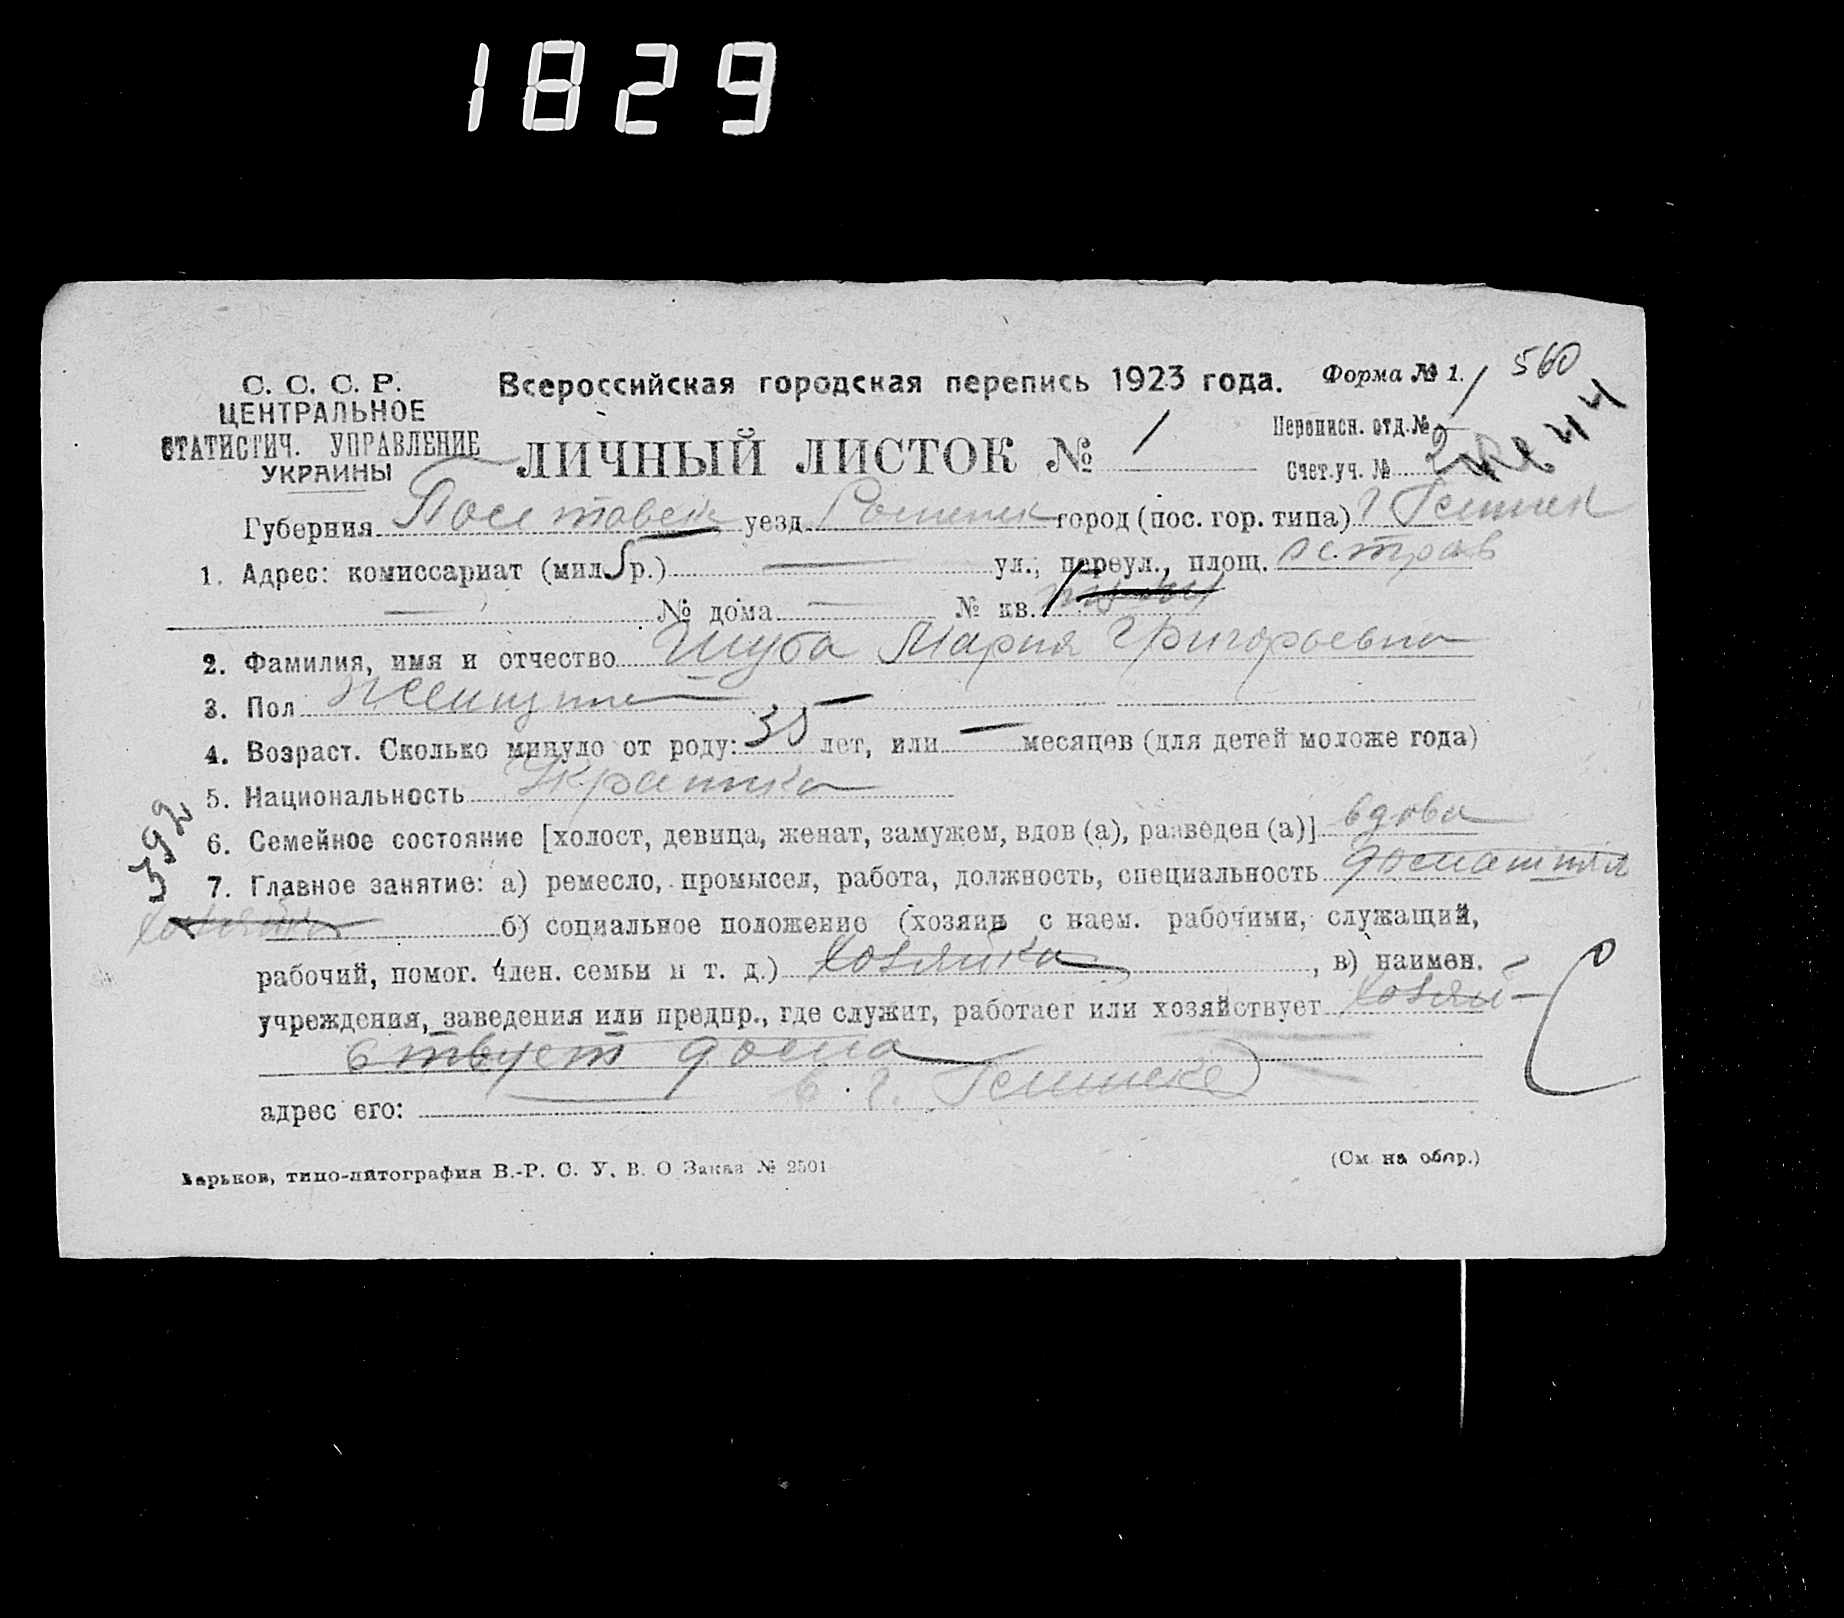 1829
С. С. С. Р.
ЦЕНТРАЛЬНОЕ
СТАТИСТИЧ. УПРАВЛЕНИЕ
УКРАИНЫ
Всероссийская городская перепись 1923 года.
Форма № 1. 560
ЛИЧНЫЙ ЛИСТОК № 1
Переписн. отд. № 1
Счет. уч. № 2
44
Губерния уезд город (пос. гор. типа) г
1. Адрес: комиссариат (мил. р.) 5 — ул., переул., площ.
— № дома — № кв.
2. Фамилия, имя и отчество Шуба Мария Григорьевна
3. Пол Женщина
4. Возраст. Сколько минуло от роду: 35 лет, или — месяцев (для детей моложе года)
5. Национальность Украинка
6. Семейное состояние [холост, девица, женат, замужем, вдов (а), разведен (а)] вдова
392
7. Главное занятие: а) ремесло, промысел, работа, должность, специальность домашняя
хозяйка б) социальное положение (хозяин с наем. рабочими, служащий,
рабочий, помог. член. семьи и т. д.) хозяйка, в) наимен.
учреждения, заведения или предпр., где служит, работает или хозяйствует хозяй-
ствует дома
адрес его: в г.
Харьков, типо-литография В.-Р. С. У. В. О Заказ № 2501
(См. на обор.)